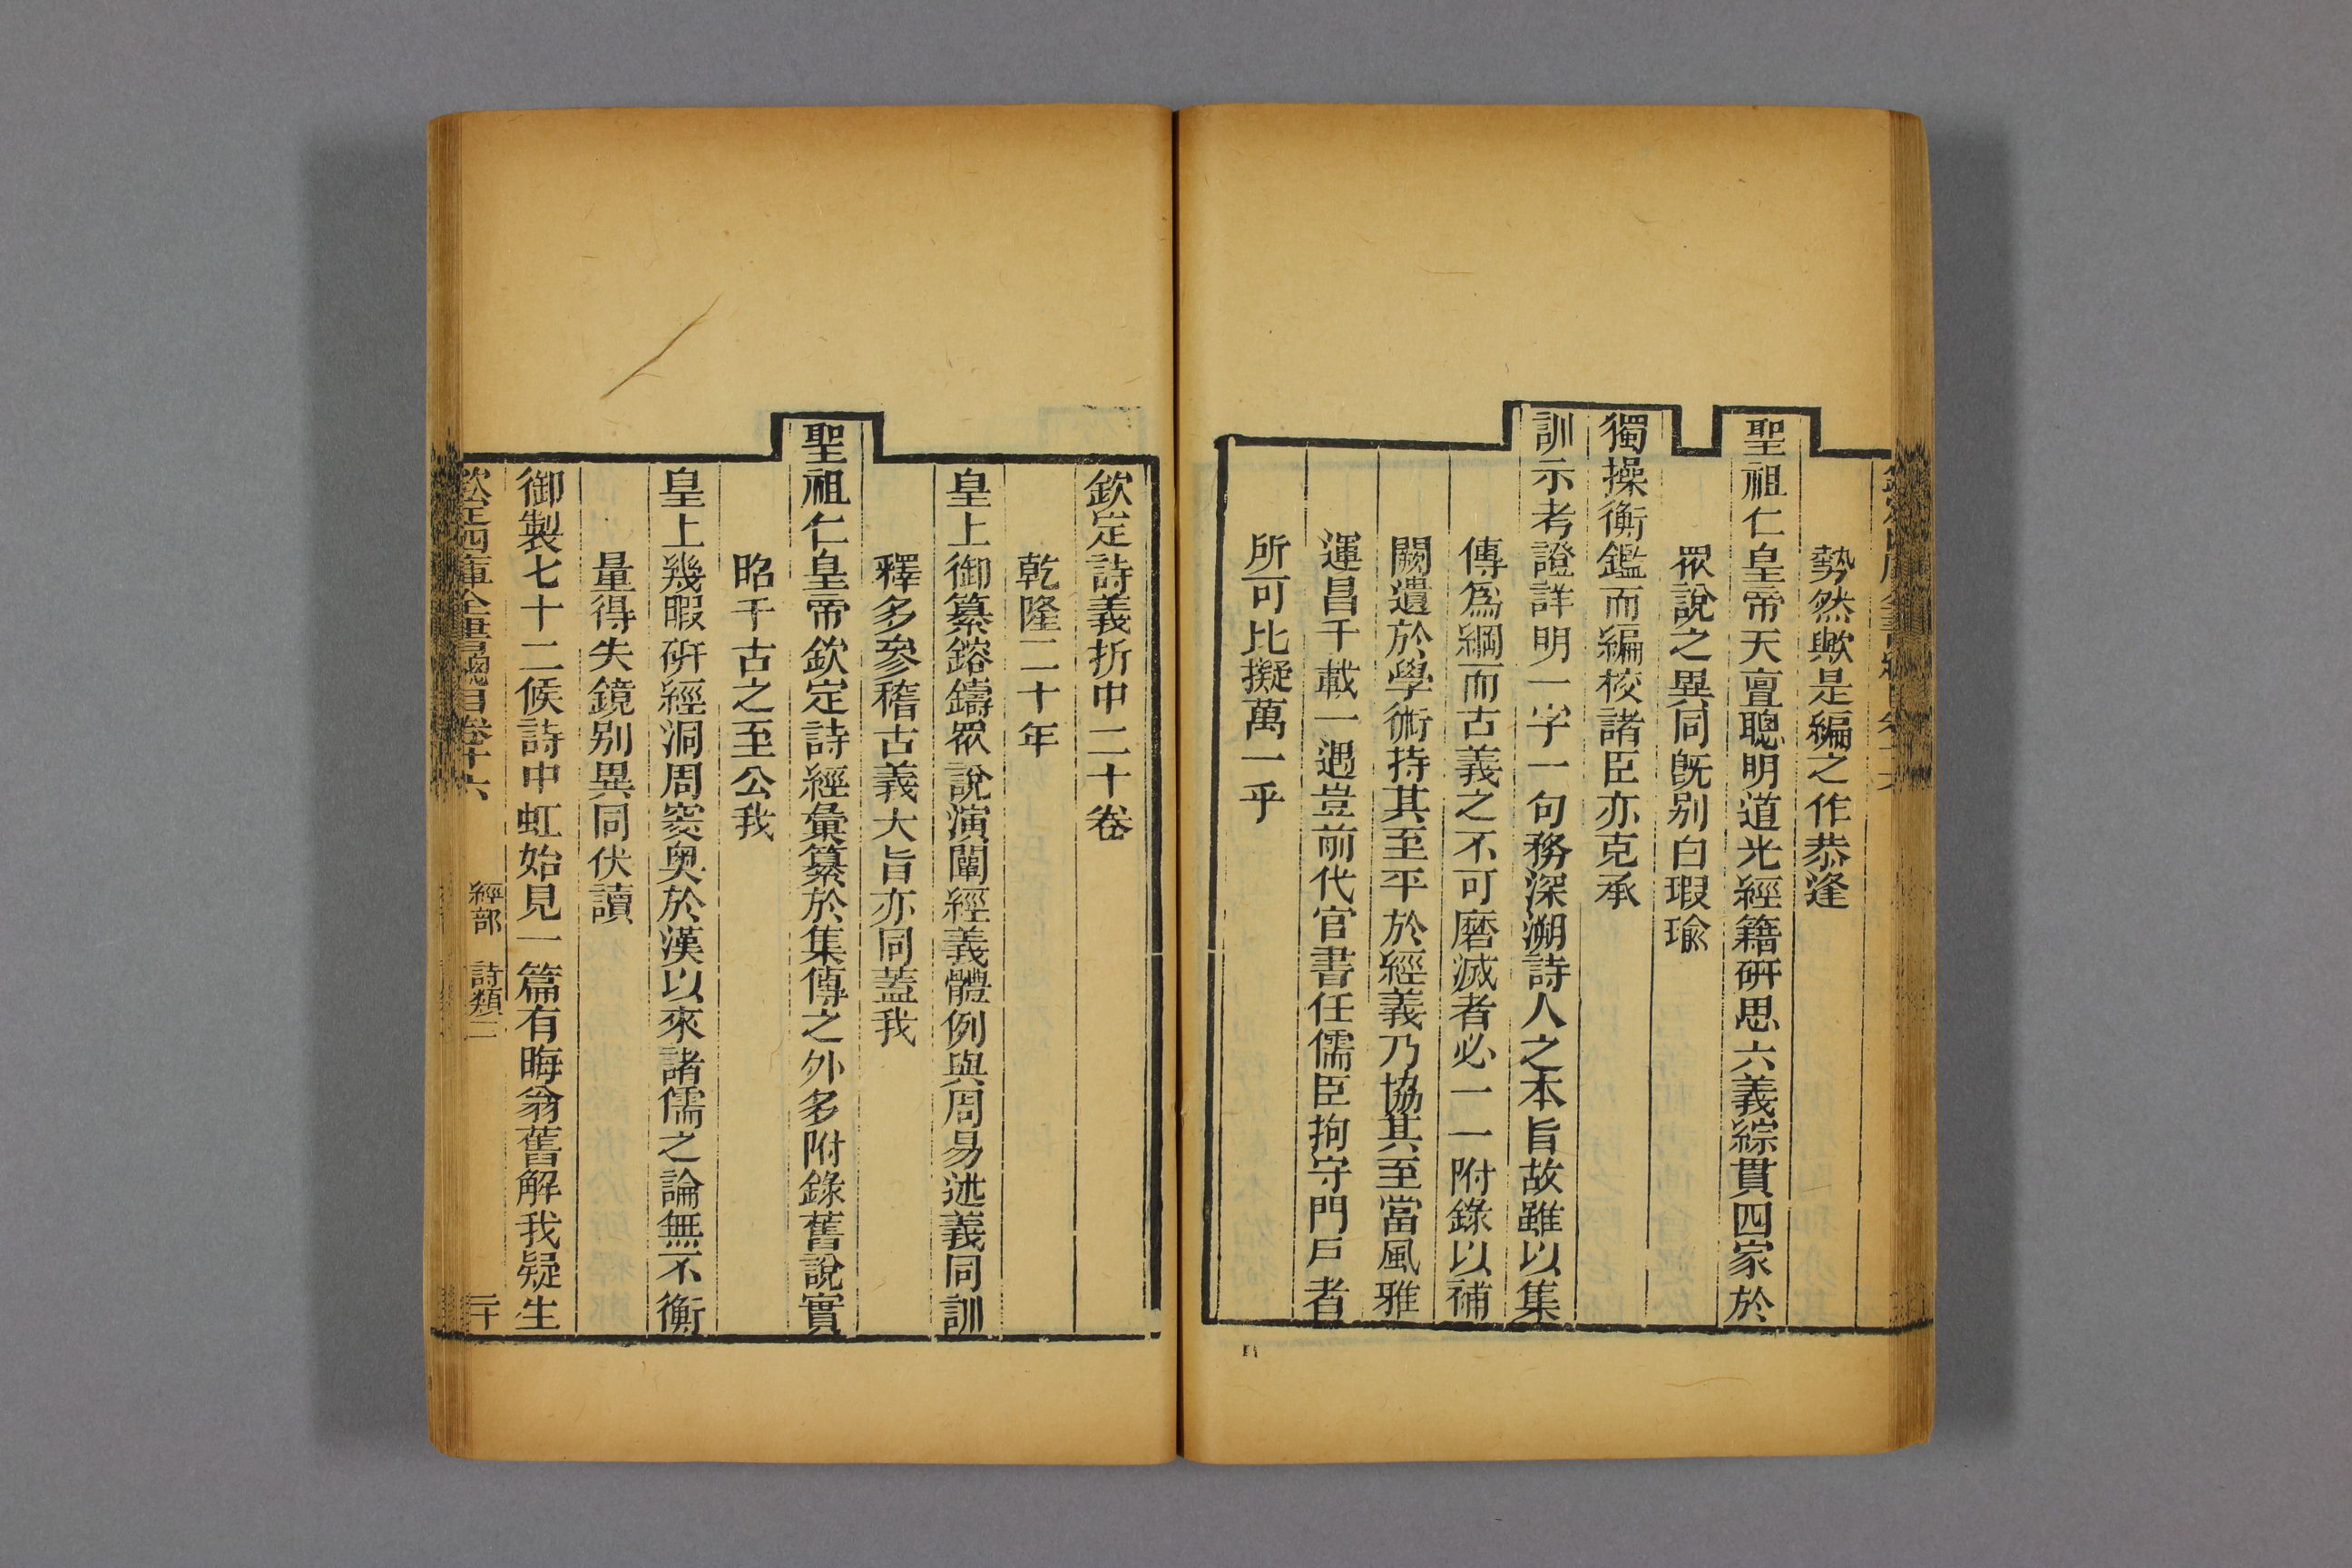 勢然歟是編之作恭逢
聖祖仁皇帝天亶聰明道光經籍硏思六義綜貫四家於
眾說之異同旣别白瑕瑜
獨操衡鑑而編校諸臣亦克承
訓示考證詳明一字一句務深溯詩人之本旨故雖以集
傳爲綱而古義之不可磨滅者必一一附錄以補
闕遺於學術持其至平於經義乃協其至當風雅
運昌千載一遇豈前代官書任儒臣拘守門戸者
所可比擬萬一乎
欽定詩義折中二十卷
乾隆二十年
皇上御纂鎔鑄眾說演闡經義體例與周易述義同訓
釋多參稽古義大旨亦同蓋我
聖祖仁皇帝欽定詩經彙纂於集傳之外多附錄舊說實
昭千古之至公我
皇上幾暇硏經洞周窔奥於漢以來諸儒之論無不衡
量得失鏡别異同伏讀
御製七十二候詩中虹始見一篇有晦翁舊解我疑生
欽定四庫全書總目卷十六 經部 詩類二 二十